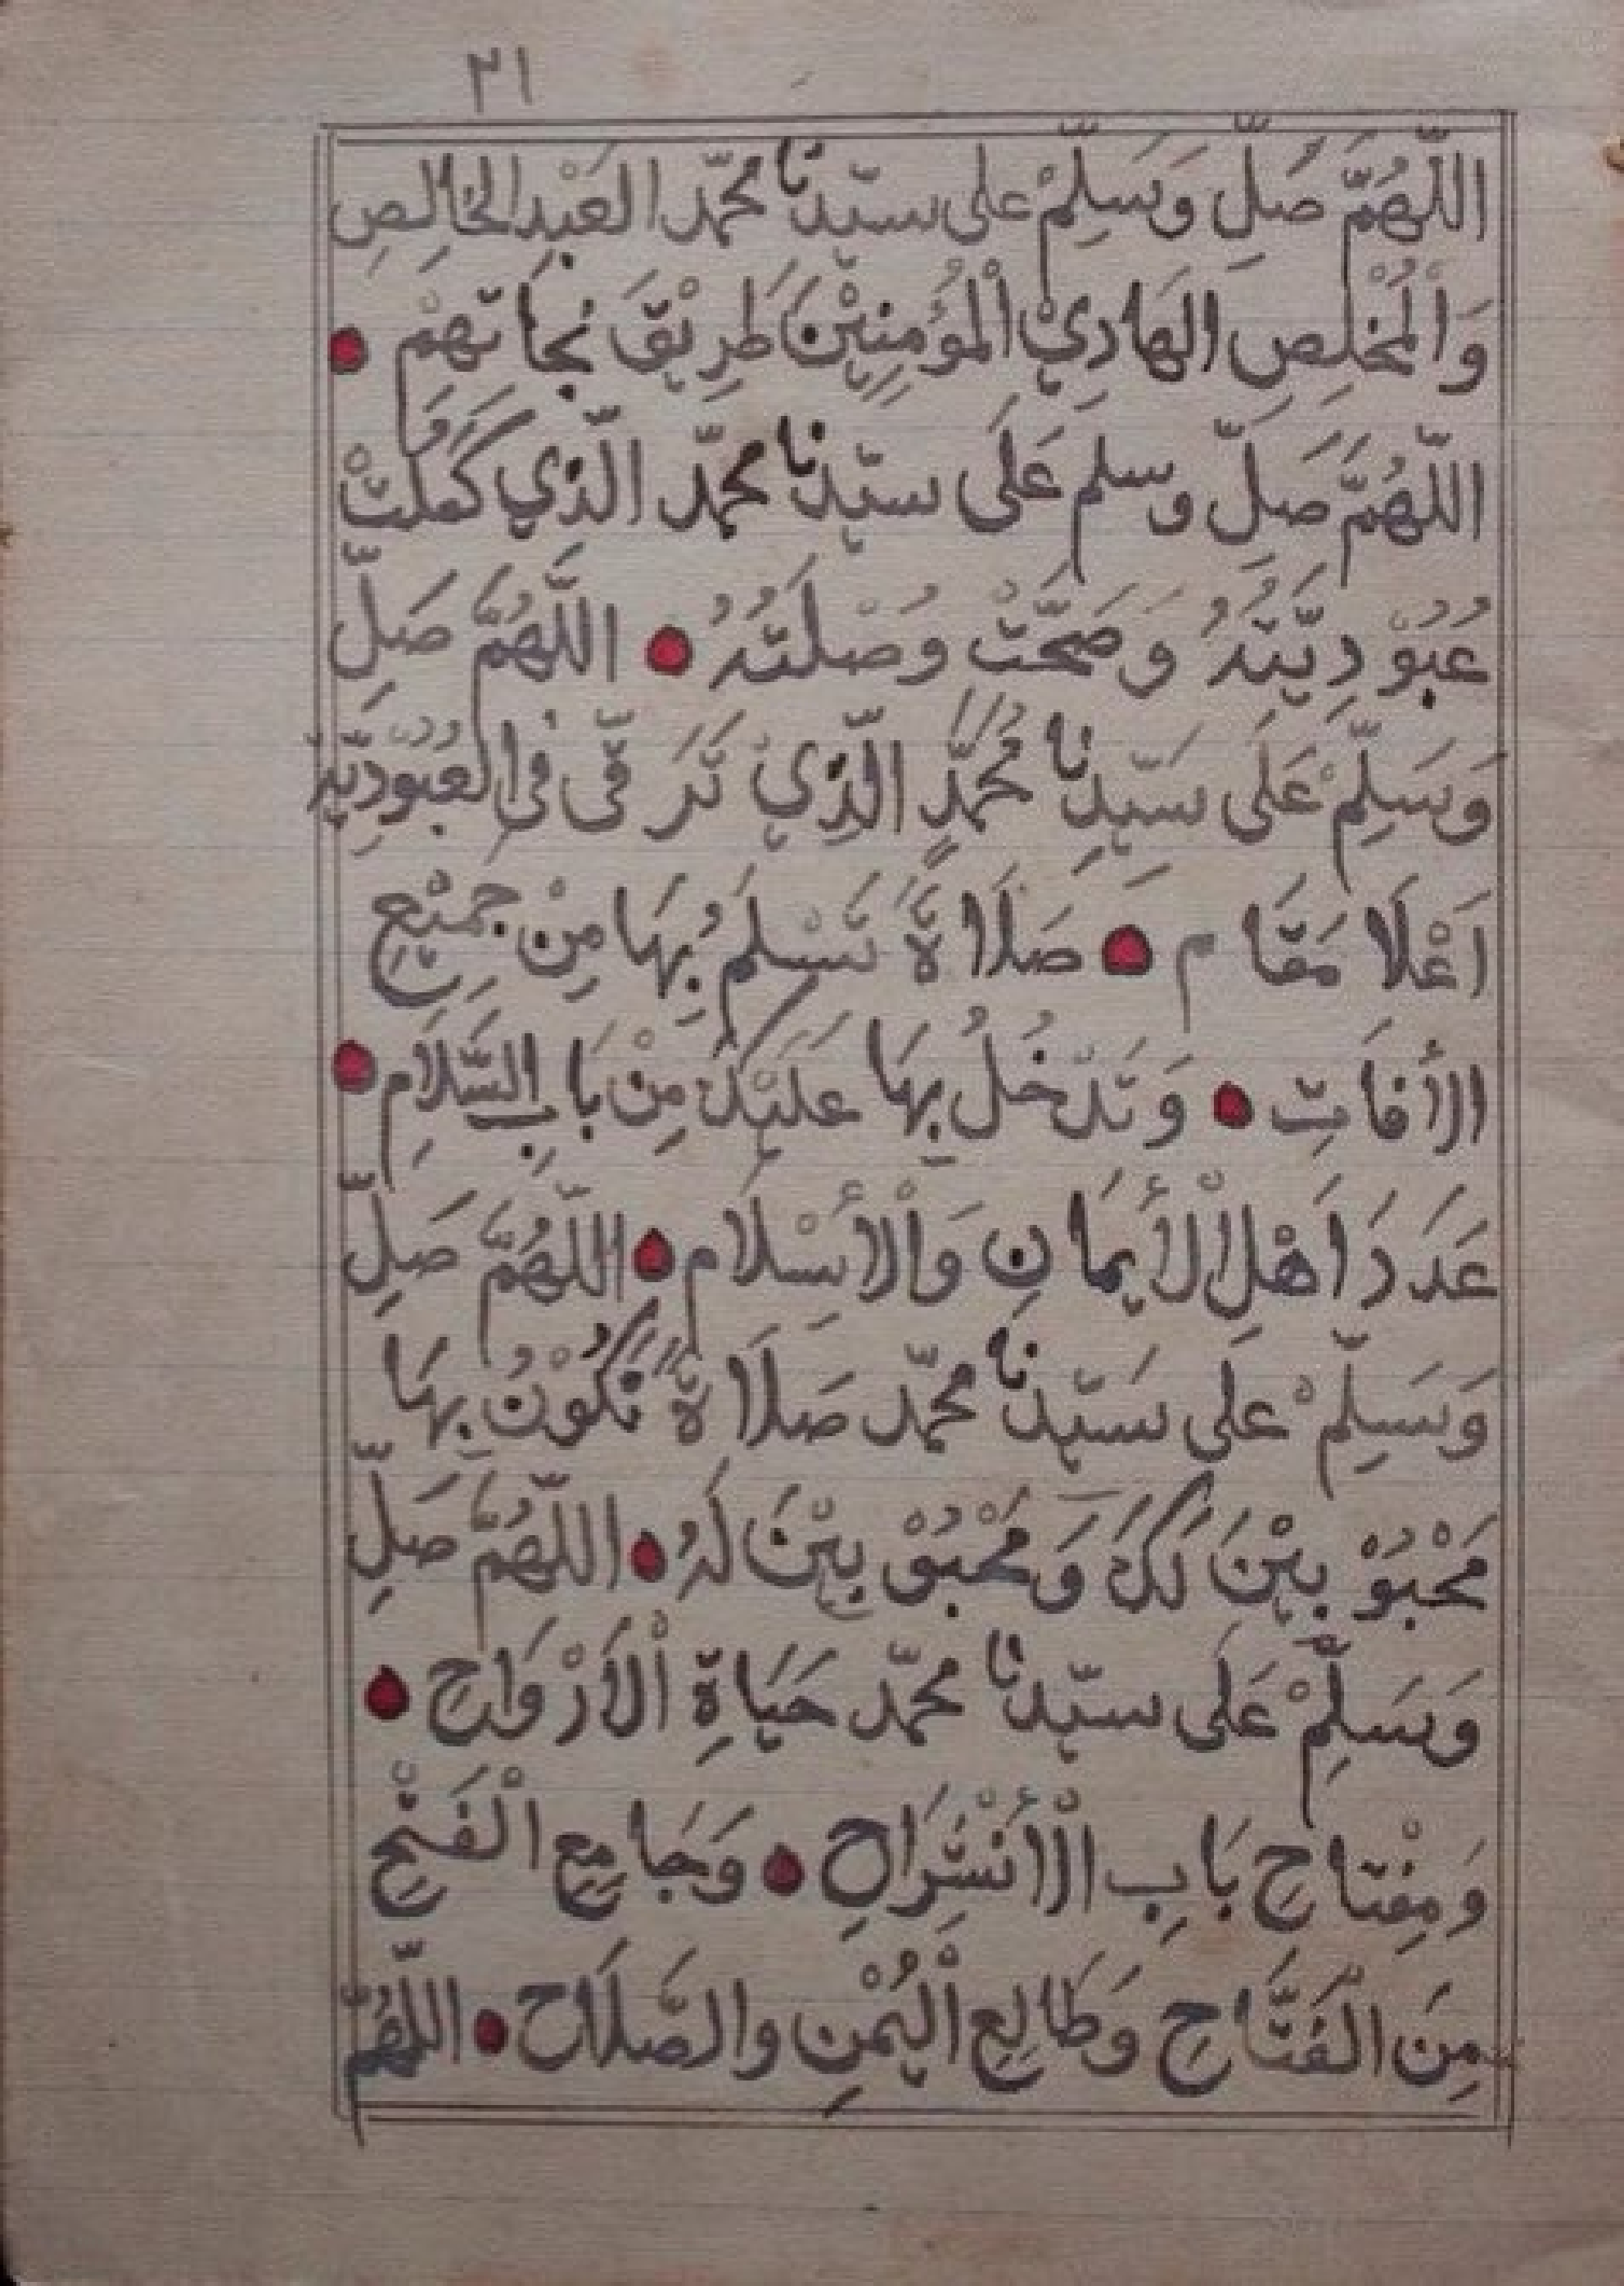 ٢١
اللّهُمَّ صَلِّ وَسَلِّمْ على سيّدنا محمّد العَبْدِ الخَالِصِ
وَالْمُخْلِصِ الهَادِيْ الْمُؤْمِنِيْنَ طَرِيْقَ نَجَاتِهِمْ ●
اللّهُمَّ صَلِّ وسلم عَلَى سيّدنا محمّد الّذِي كَمُلَتْ
عُبُوْدِيَّتُهُ وَصَحَّتْ وُصْلَتُهُ ● اللّهُمَّ صَلِّ
وَسَلِّمْ عَلَى سَيِّدِنَا مُحَمَّدٍ الّذِيْ تَرَقَّى فِى العُبُوْدِيَّةِ
اَعْلَا مَقَام ● صَلَاةً تَسْلَمُ بِهَا مِنْ جَمِيْعِ
الأفَاتِ ● وَتَدْخُلُ بِهَا عَلَيْكَ مِنْ بَابِ السَّلَامِ ●
عَدَدَ اَهْلِ الْأيمَانِ وَالْأسْلَام ● اللّهُمَّ صَلِّ
وَسَلِّمْ على سَيّدنا محمّد صَلَاةً نَكُوْنُ بِهَا
مَحْبُوْبِيْنَ لَكَ وَمَحْبُوْبِيْنَ لَهُ ● اللّهُمَّ صَلِّ
وَسَلِّمْ عَلَى سيّدنا محمّد حَيَاةِ الْاَرْوَاحِ ●
وَمِفْتَاحِ بَابِ الْأنْشِرَاحِ ● وَجَامِعِ الْفَتْحِ
مِنَ الْفَتَّاحِ وَطَالِعِ الْيُمْنِ والصَّلَاح ● اللّهُمّ